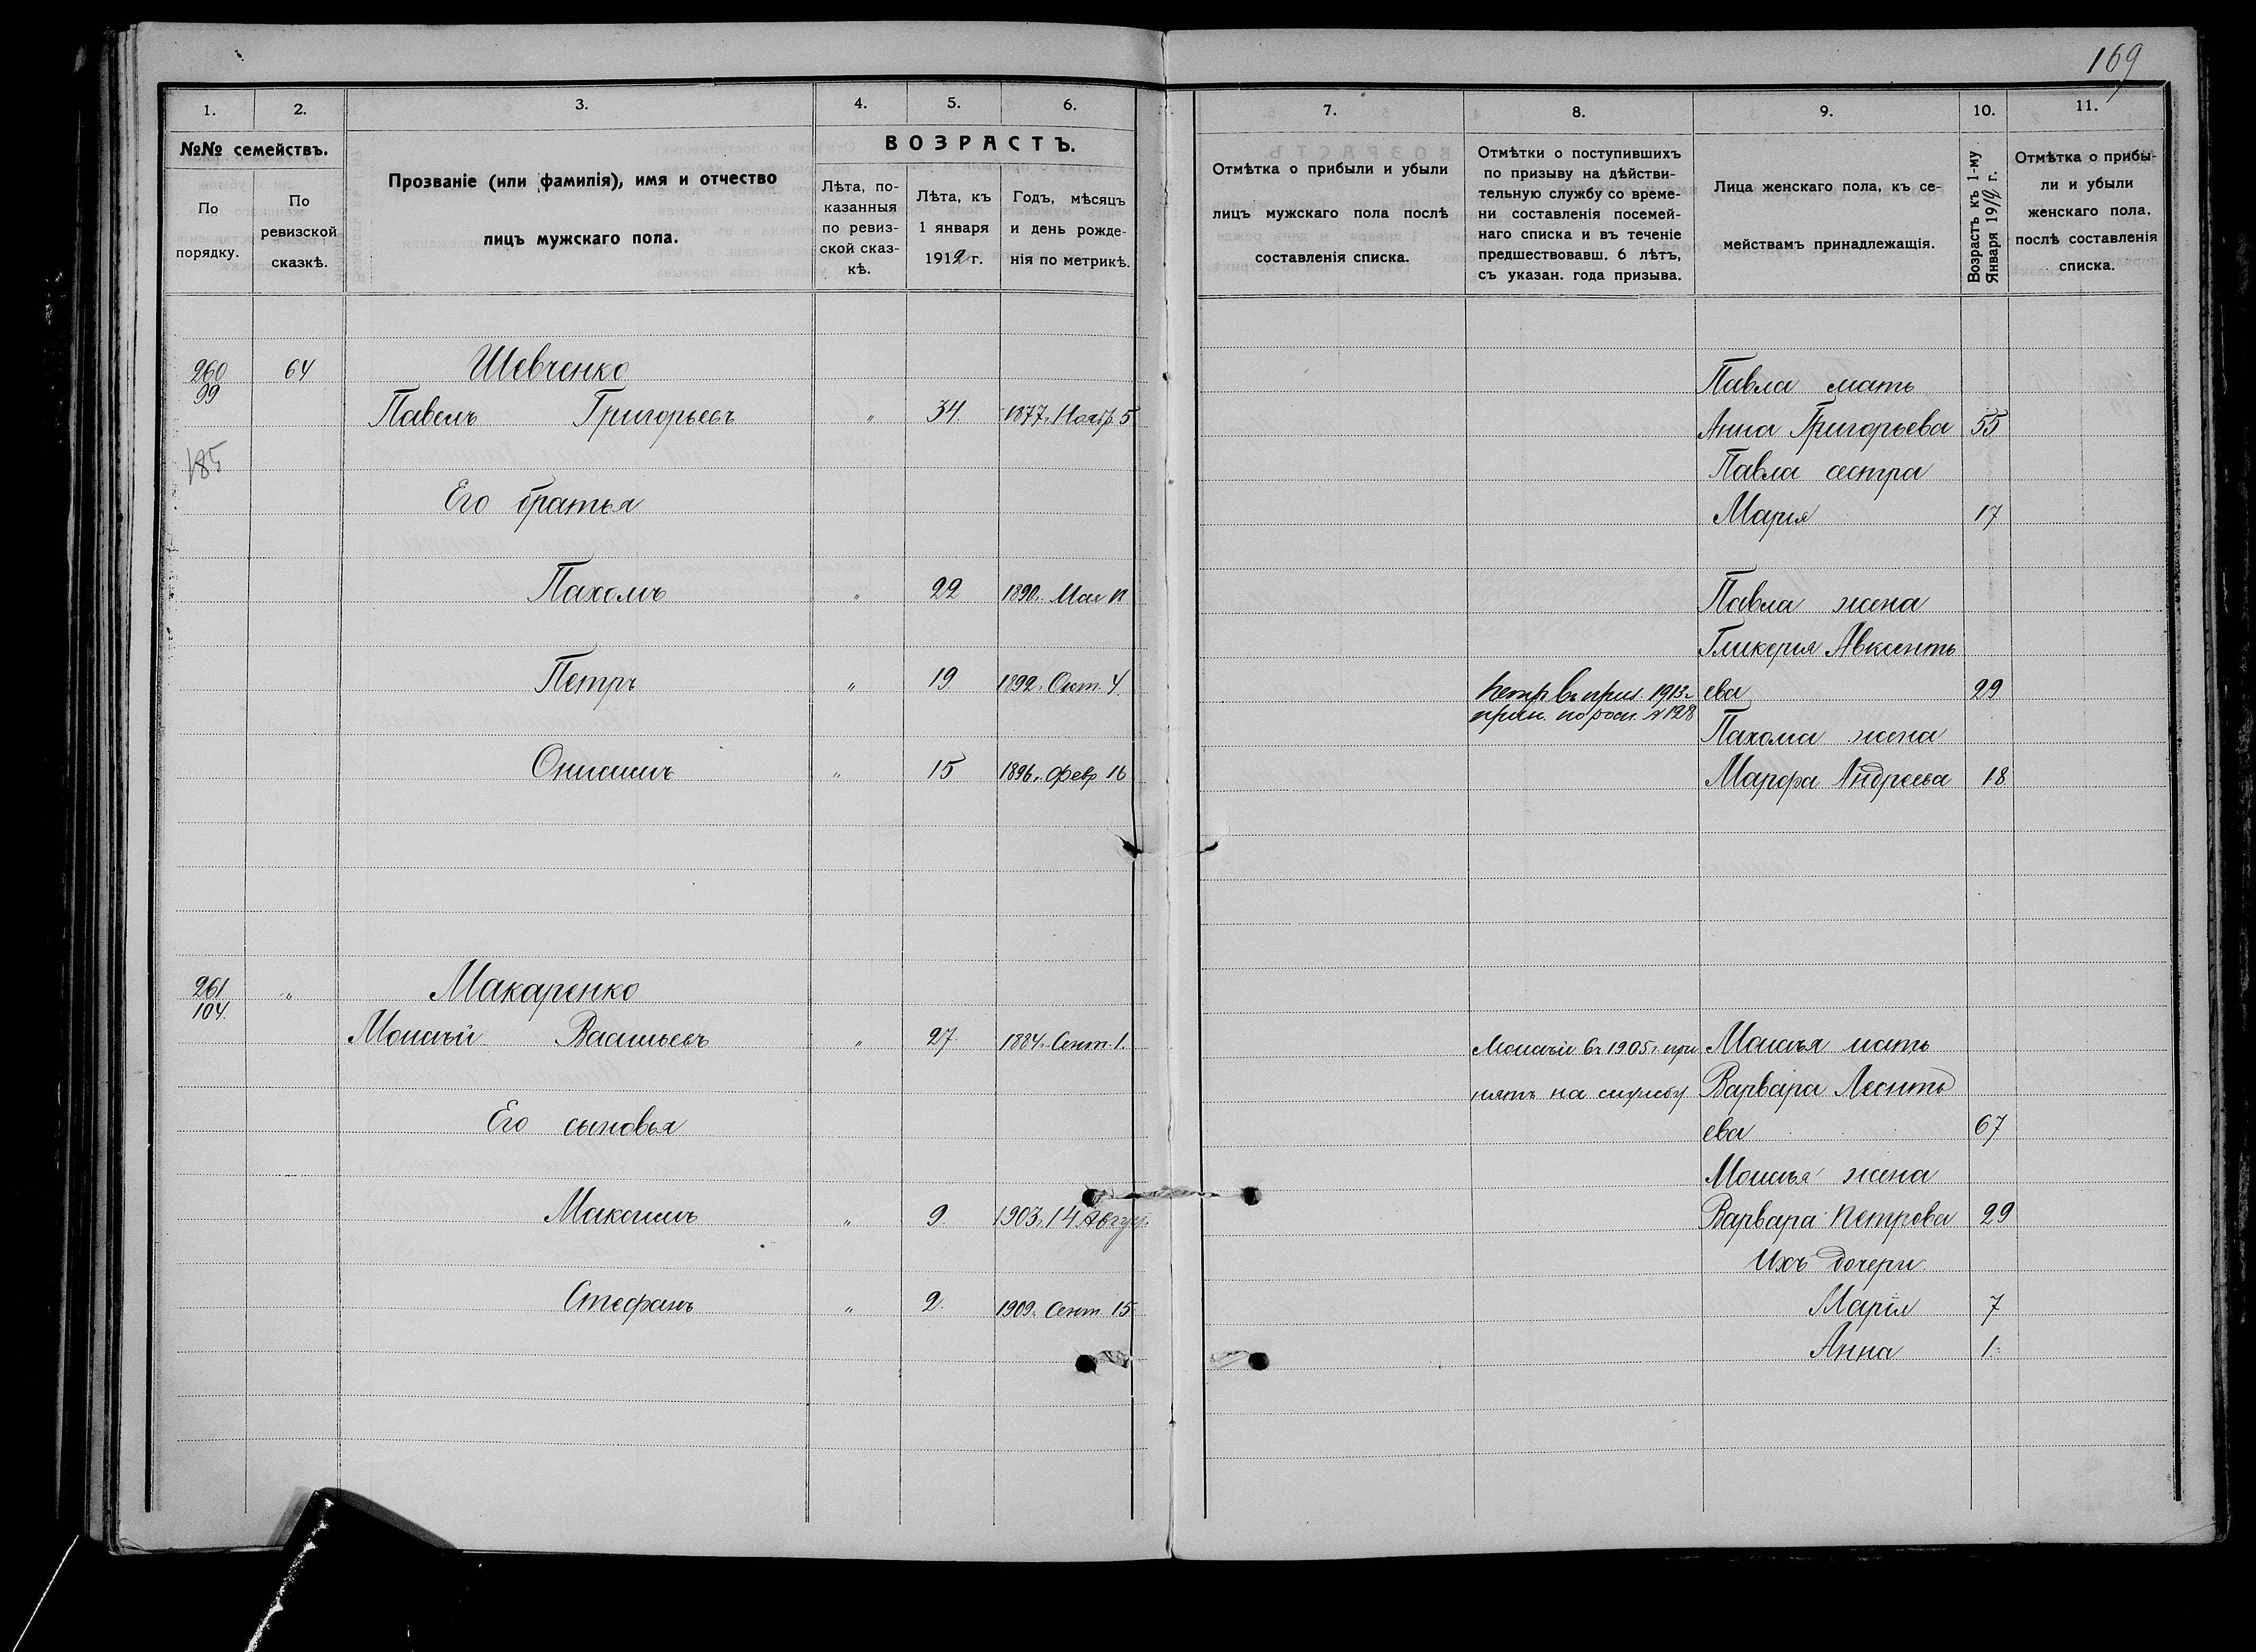 169
1. 2. 3. 4. 5. 6.
№№ семействъ.
По порядку.
По ревизской сказкѣ.
Прозваніе (или фамилія), имя и отчество
лицъ мужскаго пола.
ВОЗРАСТЪ.
Лѣта, по-
казанныя
по ревиз-
ской сказ-
кѣ.
Лѣта, къ
1 января
1912 г.
Годъ, мѣсяцъ
и день рожде-
нія по метрикѣ.
260 64 Шевченко
99
Павелъ Григорьевъ " 34. 1877. Нояб. 5
185
Его братья
Пахомъ " 22 1890. Мая 11
Петръ " 19 1892. Окт. 4
Онисимъ " 15 1896. Февр 16
261 " Макаренко
104.
Моисей Васильевъ " 27. 1884. Сент. 1.
Его сыновья
Максимъ " 9. 1903. 14 Август.
Стефанъ " 2. 1909. Сент. 15
7. 8. 9. 10. 11.
Отмѣтка о прибыли и убыли
лицъ мужскаго пола послѣ
составленія списка.
Отмѣтки о поступившихъ
по призыву на дѣйстви-
тельную службу со време-
ни составленія посемей-
наго списка и въ теченіе
предшествовавш. 6 лѣтъ,
съ указан. года призыва.
Лица женскаго пола, къ се-
мействамъ принадлежащія.
Возрастъ къ 1-му
Января 1912 г.
Отмѣтка о прибы-
ли и убыли
женскаго пола,
послѣ составленія
списка.
Павла мать
Анна Григорьева 55
Павла сестра
Марія 17
Павла жена
Гликерія Авксенть
Петр въ приз. 1913 г. ева 29
прин. по росп. № 128
Пахома жена
Марфа Андреева 18
Моисей въ 1905 г. при Моисея мать
нятъ на службу Варвара Леонть
ева 67
Моисея жена
Варвара Петрова 29
Ихъ дочери
Марія 7
Анна 1.